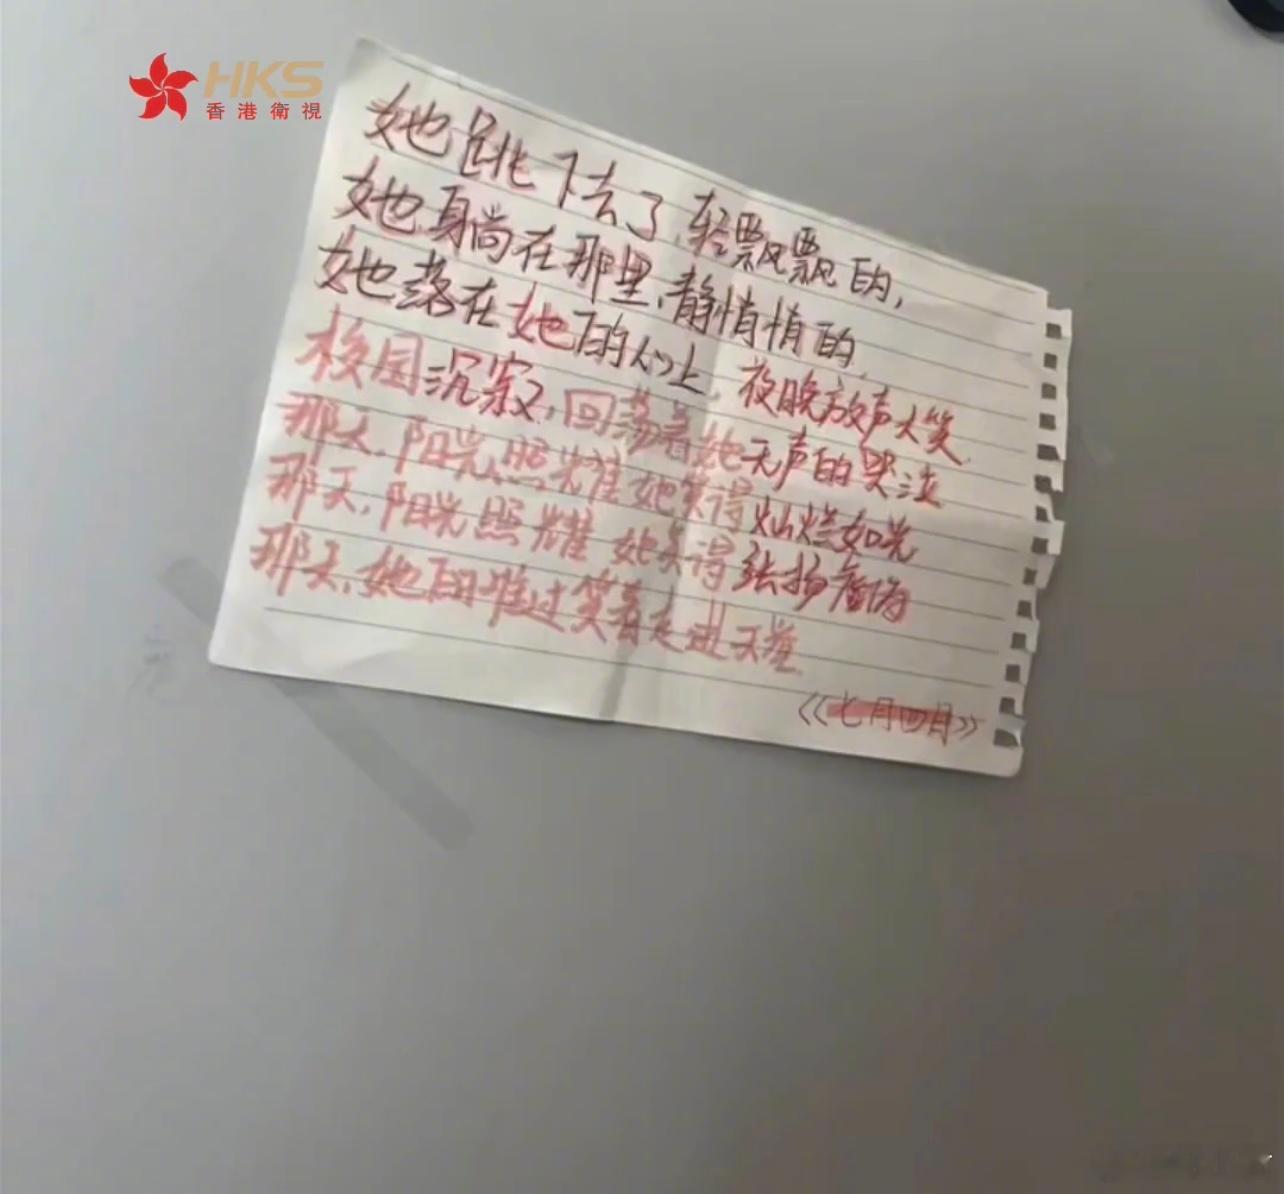 HKS
香港衛視
她跳下去了,轻飘飘的,
她躺在那里,静悄悄的,
她落在她的心上,夜晚放声大笑,
校园沉寂,回荡着她无声的哭泣
那天,阳光照耀她笑得灿烂如光
那天,阳光照耀她笑得张扬虚伪
那天,她的难过笑着走进天堂.
《七月四日》